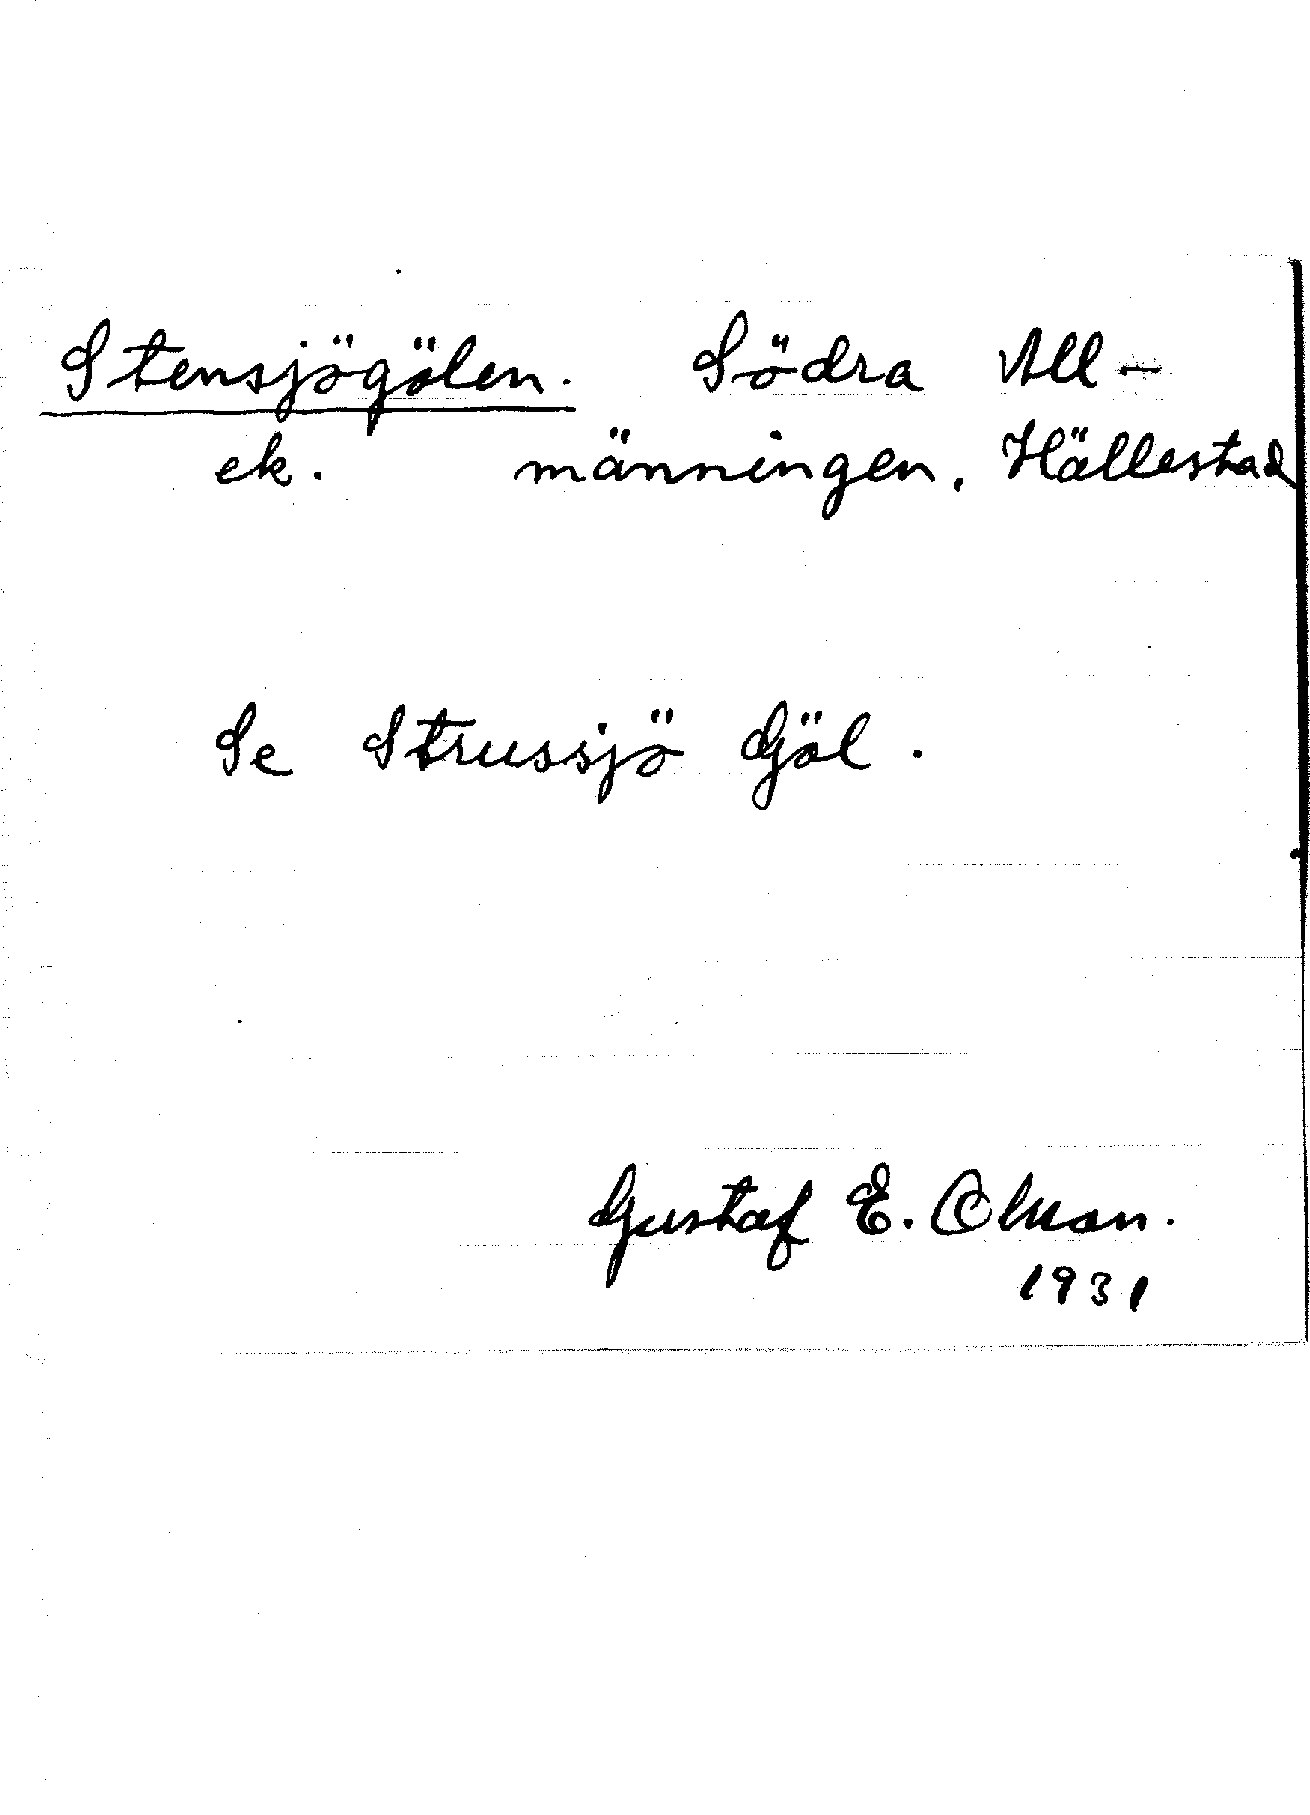 Stensjögölen. Södra All-
ek. männingen. Hällestad
Se Strussjö Göl.
Gustaf E. Olsson.
1931